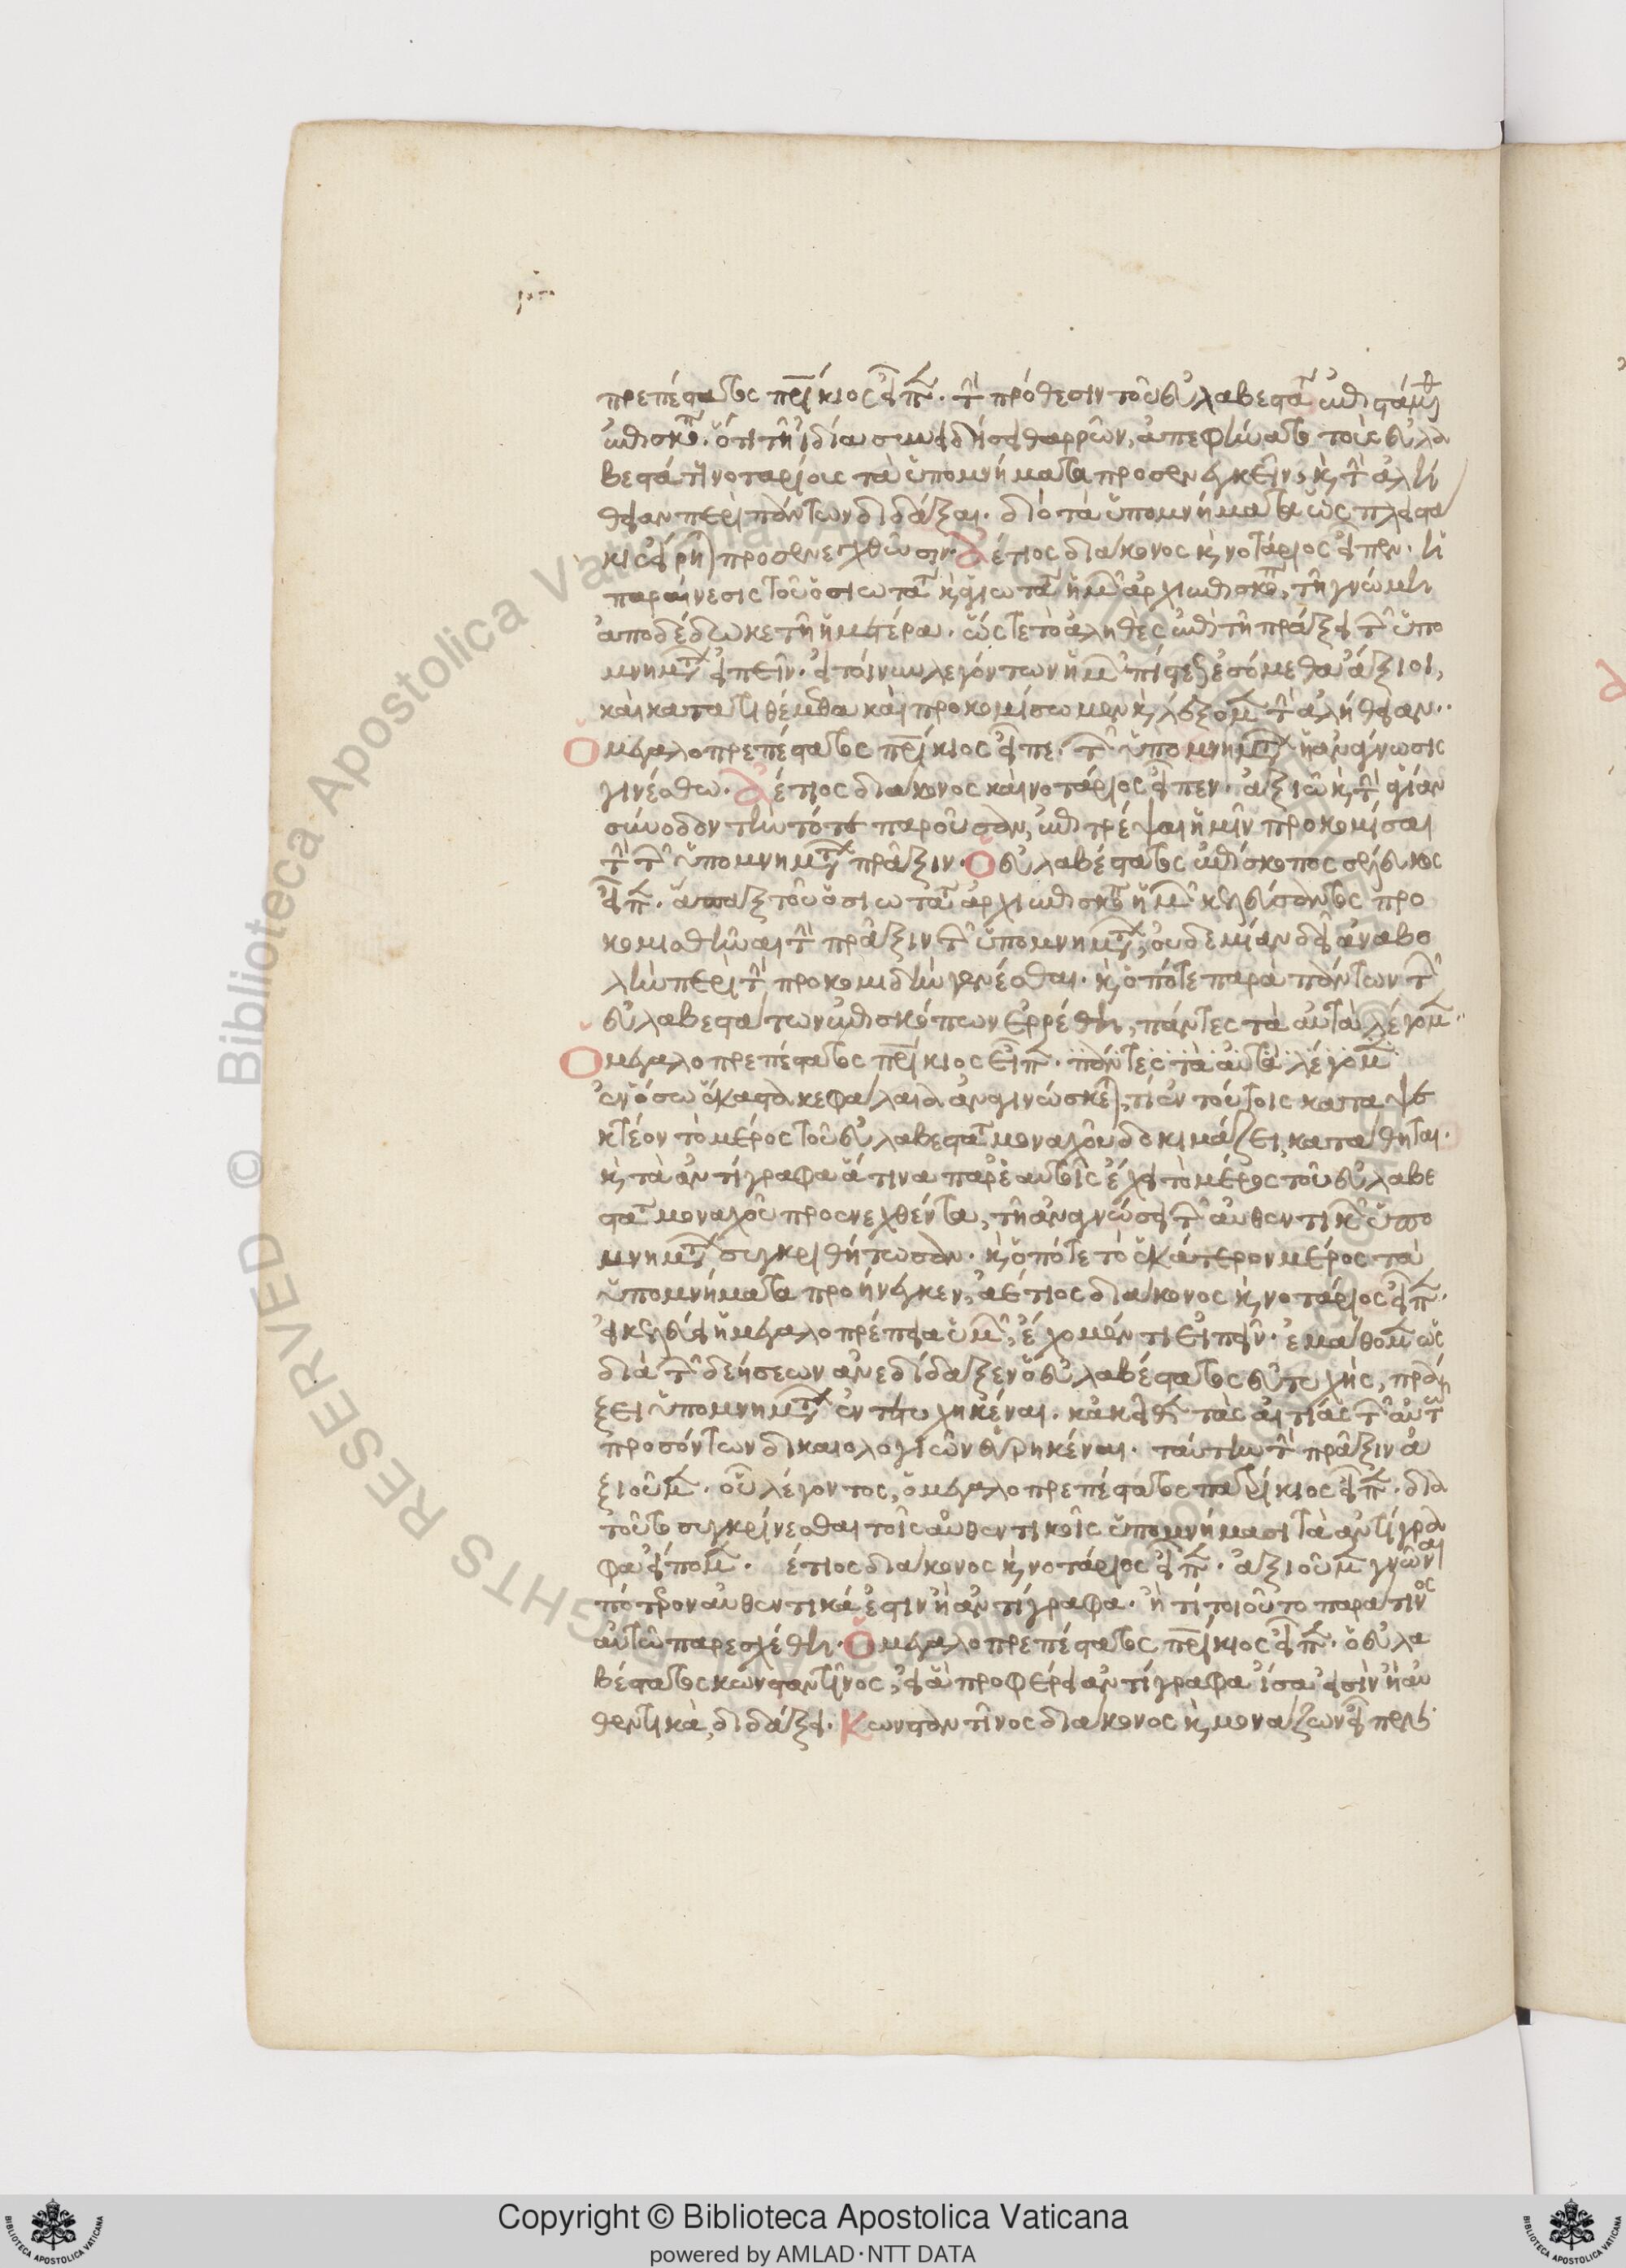 πρεπέστατος πατρίκιος εἶπεν. τὴν πρόθεσιν τοῦ εὐλαβεστάτου ἐπιστάμεθα
ἐπισκόπου. ὅτι τῇ ἰδίᾳ συνειδήσει θαρρῶν, ἀπεφήνατο τοὺς εὐλα
βεστάτους νοταρίους τὰ ὑπομνήματα προσενεγκεῖν, καὶ τὴν ἀλή
θειαν περὶ πάντων διδάξαι. διὸ τὰ ὑπομνήματα ὡς πλειστά
κις εἴρηται προσενεχθῶσιν. ἀέτιος διάκονος καὶ νοτάριος εἶπεν. ἡ
παραίνεσις τοῦ ὁσιωτάτου καὶ ἁγιωτάτου ἡμῶν ἀρχιεπισκόπου, τὴν γνώμην
ἀποδέδωκε τῇ ἡμετέρᾳ. ὥστε τὸ ἀληθὲς ἐπὶ τῇ πράξει τῶν ὑπο
μνημάτων εἰπεῖν. εἰ τοίνυν λεγόντων ἡμῶν πίστεως ἐσόμεθα ἄξιοι,
καὶ κατατιθέμεθα καὶ προκομίσωμεν καὶ λέξομεν τὴν ἀλήθειαν.
Ὁ μεγαλοπρεπέστατος πατρίκιος εἶπε. τῶν ὑπομνημάτων ἡ ἀνάγνωσις
γινέσθω. ἀέτιος διάκονος καὶ νοτάριος εἶπεν. ἀξιῶ καὶ τὴν ἁγίαν
σύνοδον τὴν τότε παροῦσαν, ἐπιτρέψαι ἡμῖν προκομίσαι
τὴν τῶν ὑπομνημάτων πρᾶξιν. Ὁ εὐλαβέστατος ἐπίσκοπος σέλευκος
εἶπεν. ἅπαξ τοῦ ὁσιωτάτου ἀρχιεπισκόπου ἡμῶν κελεύσαντος προ
κομισθῆναι τὴν πρᾶξιν τῶν ὑπομνημάτων, οὐδεμίαν δεῖ ἀναβο
λὴν περὶ τὴν προκομιδὴν γενέσθαι. καὶ ὁπότε παρὰ πάντων τῶν
εὐλαβεστάτων ἐπισκόπων ἐρρέθη, πάντες τὰ αὐτὰ λέγομεν.
Ὁ μεγαλοπρεπέστατος πατρίκιος εἶπεν. πάντες τὰ αὐτὰ λέγομεν
ἐν ὅσῳ ἕκαστα κεφάλαια ἀναγινώσκεται, τί ἐν τούτοις καταψε
κτέον τὸ μέρος τοῦ εὐλαβεστάτου μοναχοῦ δοκιμάζει, καταθῆται.
καὶ τὰ ἀντίγραφα ἅτινα παρ' ἑαυτοῖς ἔχει τὸ μέρος τοῦ εὐλαβε
στάτου μοναχοῦ προσενεχθέντα, τῇ ἀναγνώσει τῶν αὐθεντικῶν ὑπο
μνημάτων συγκριθήτωσαν. καὶ ὁπότε τὸ ἑκάτερον μέρος τὰ
ὑπομνήματα προήνεγκεν, ἀέτιος διάκονος καὶ νοτάριος εἶπεν.
εἰ κελεύει ἡ μεγαλοπρέπεια ὑμῶν, ἔχομέν τι εἰπεῖν. ἐμάθομεν ὡς
διὰ τῶν δεήσεων ἀνεδίδαξεν ὁ εὐλαβέστατος εὐτυχής, πρά
ξει ὑπομνημάτων ἐντετυχηκέναι. κἀκεῖθεν τὰς αἰτίας τῶν αὐτῷ
προσόντων δικαιολογιῶν εὑρηκέναι. ταύτην τὴν πρᾶξιν ἀ
ξιοῦμεν. οὗ λέγοντος, ὁ μεγαλοπρεπέστατος πατρίκιος εἶπεν. διὰ
τοῦτο συγκρίνεσθαι τοῖς αὐθεντικοῖς ὑπομνήμασι τὰ ἀντίγρα
φα εἴπομεν. έτιος διάκονος καὶ νοτάριος εἶπεν. ἀξιοῦμεν γνῶναι
πότερον αὐθεντικά ἐστιν ἢ ἀντίγραφα. ἤ τι τοιοῦτο παρά τινος
αὐτῷ παρεσχέθη. Ὁ μεγαλοπρεπέστατος πατρίκιος εἶπεν. ὁ εὐλα
βέστατος κωνσταντῖνος, εἰ ἃ προφέρει ἀντίγραφα ἴσα εἰσὶν ἢ αὐ
θεντικὰ, διδάξει. Κωνσταντῖνος διάκονος καὶ μονάζων εἶπεν.